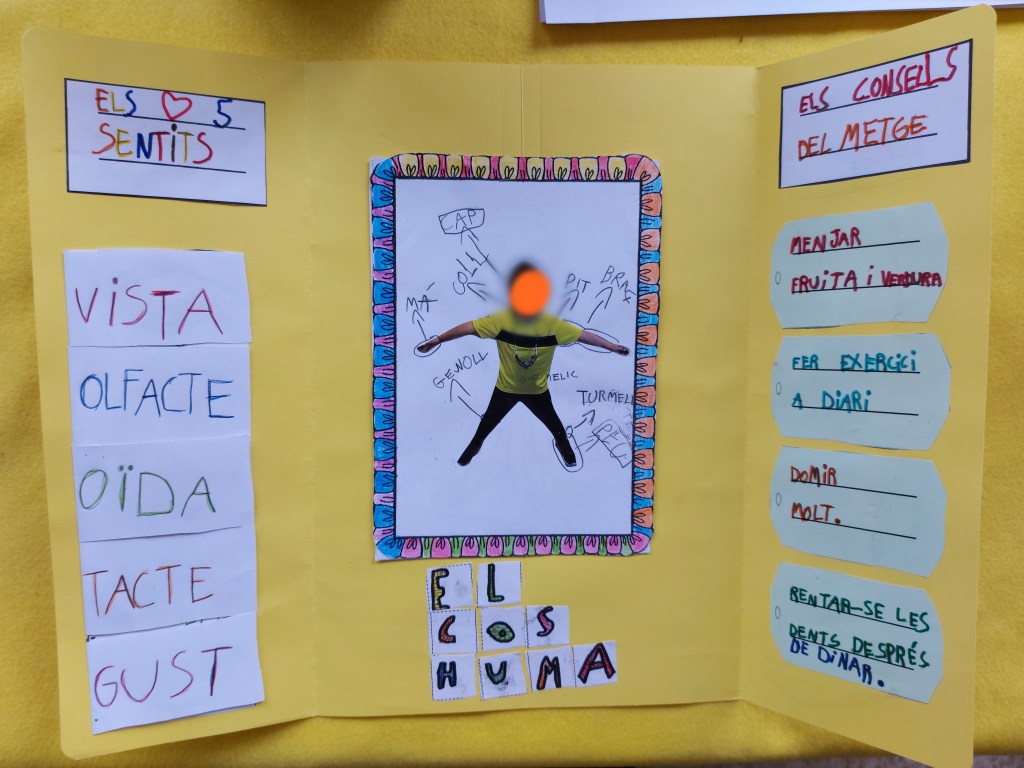 ELS 5
SENTITS
VISTA
OLFACTE
OÏDA
TACTE
GUST
CAP
COLL
PIT
BRAÇ
MÁ
GENOLL
MELIC
TURMELL
PEU
EL
COS
HUMA
ELS CONSELLS
DEL METGE
MENJAR
FRUITA I VERDURA
FER EXERCICI
A DIARI
DOMIR
MOLT.
RENTAR-SE LES
DENTS DESPRÉS
DE DINAR.